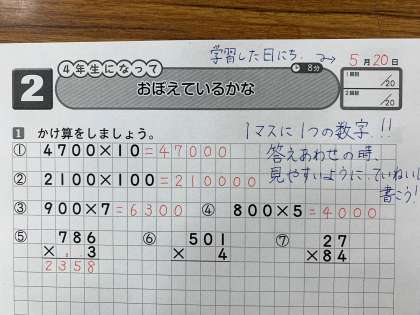 学習した日にち。→ 5月20日
2
4年生になって
8分
おぼえているかな
1回目 /20
2回目 /20
1 かけ算をしましょう。
1マスに1つの数字!!
答えあわせの時、
見やすいように、ていねいに
書こう!
① 4700×10=47000
② 2100×100=210000
③ 900×7=6300 ④ 800×5=4000
⑤ 786 ⑥ 501 ⑦ 27
× 3 × 4 ×84
2358